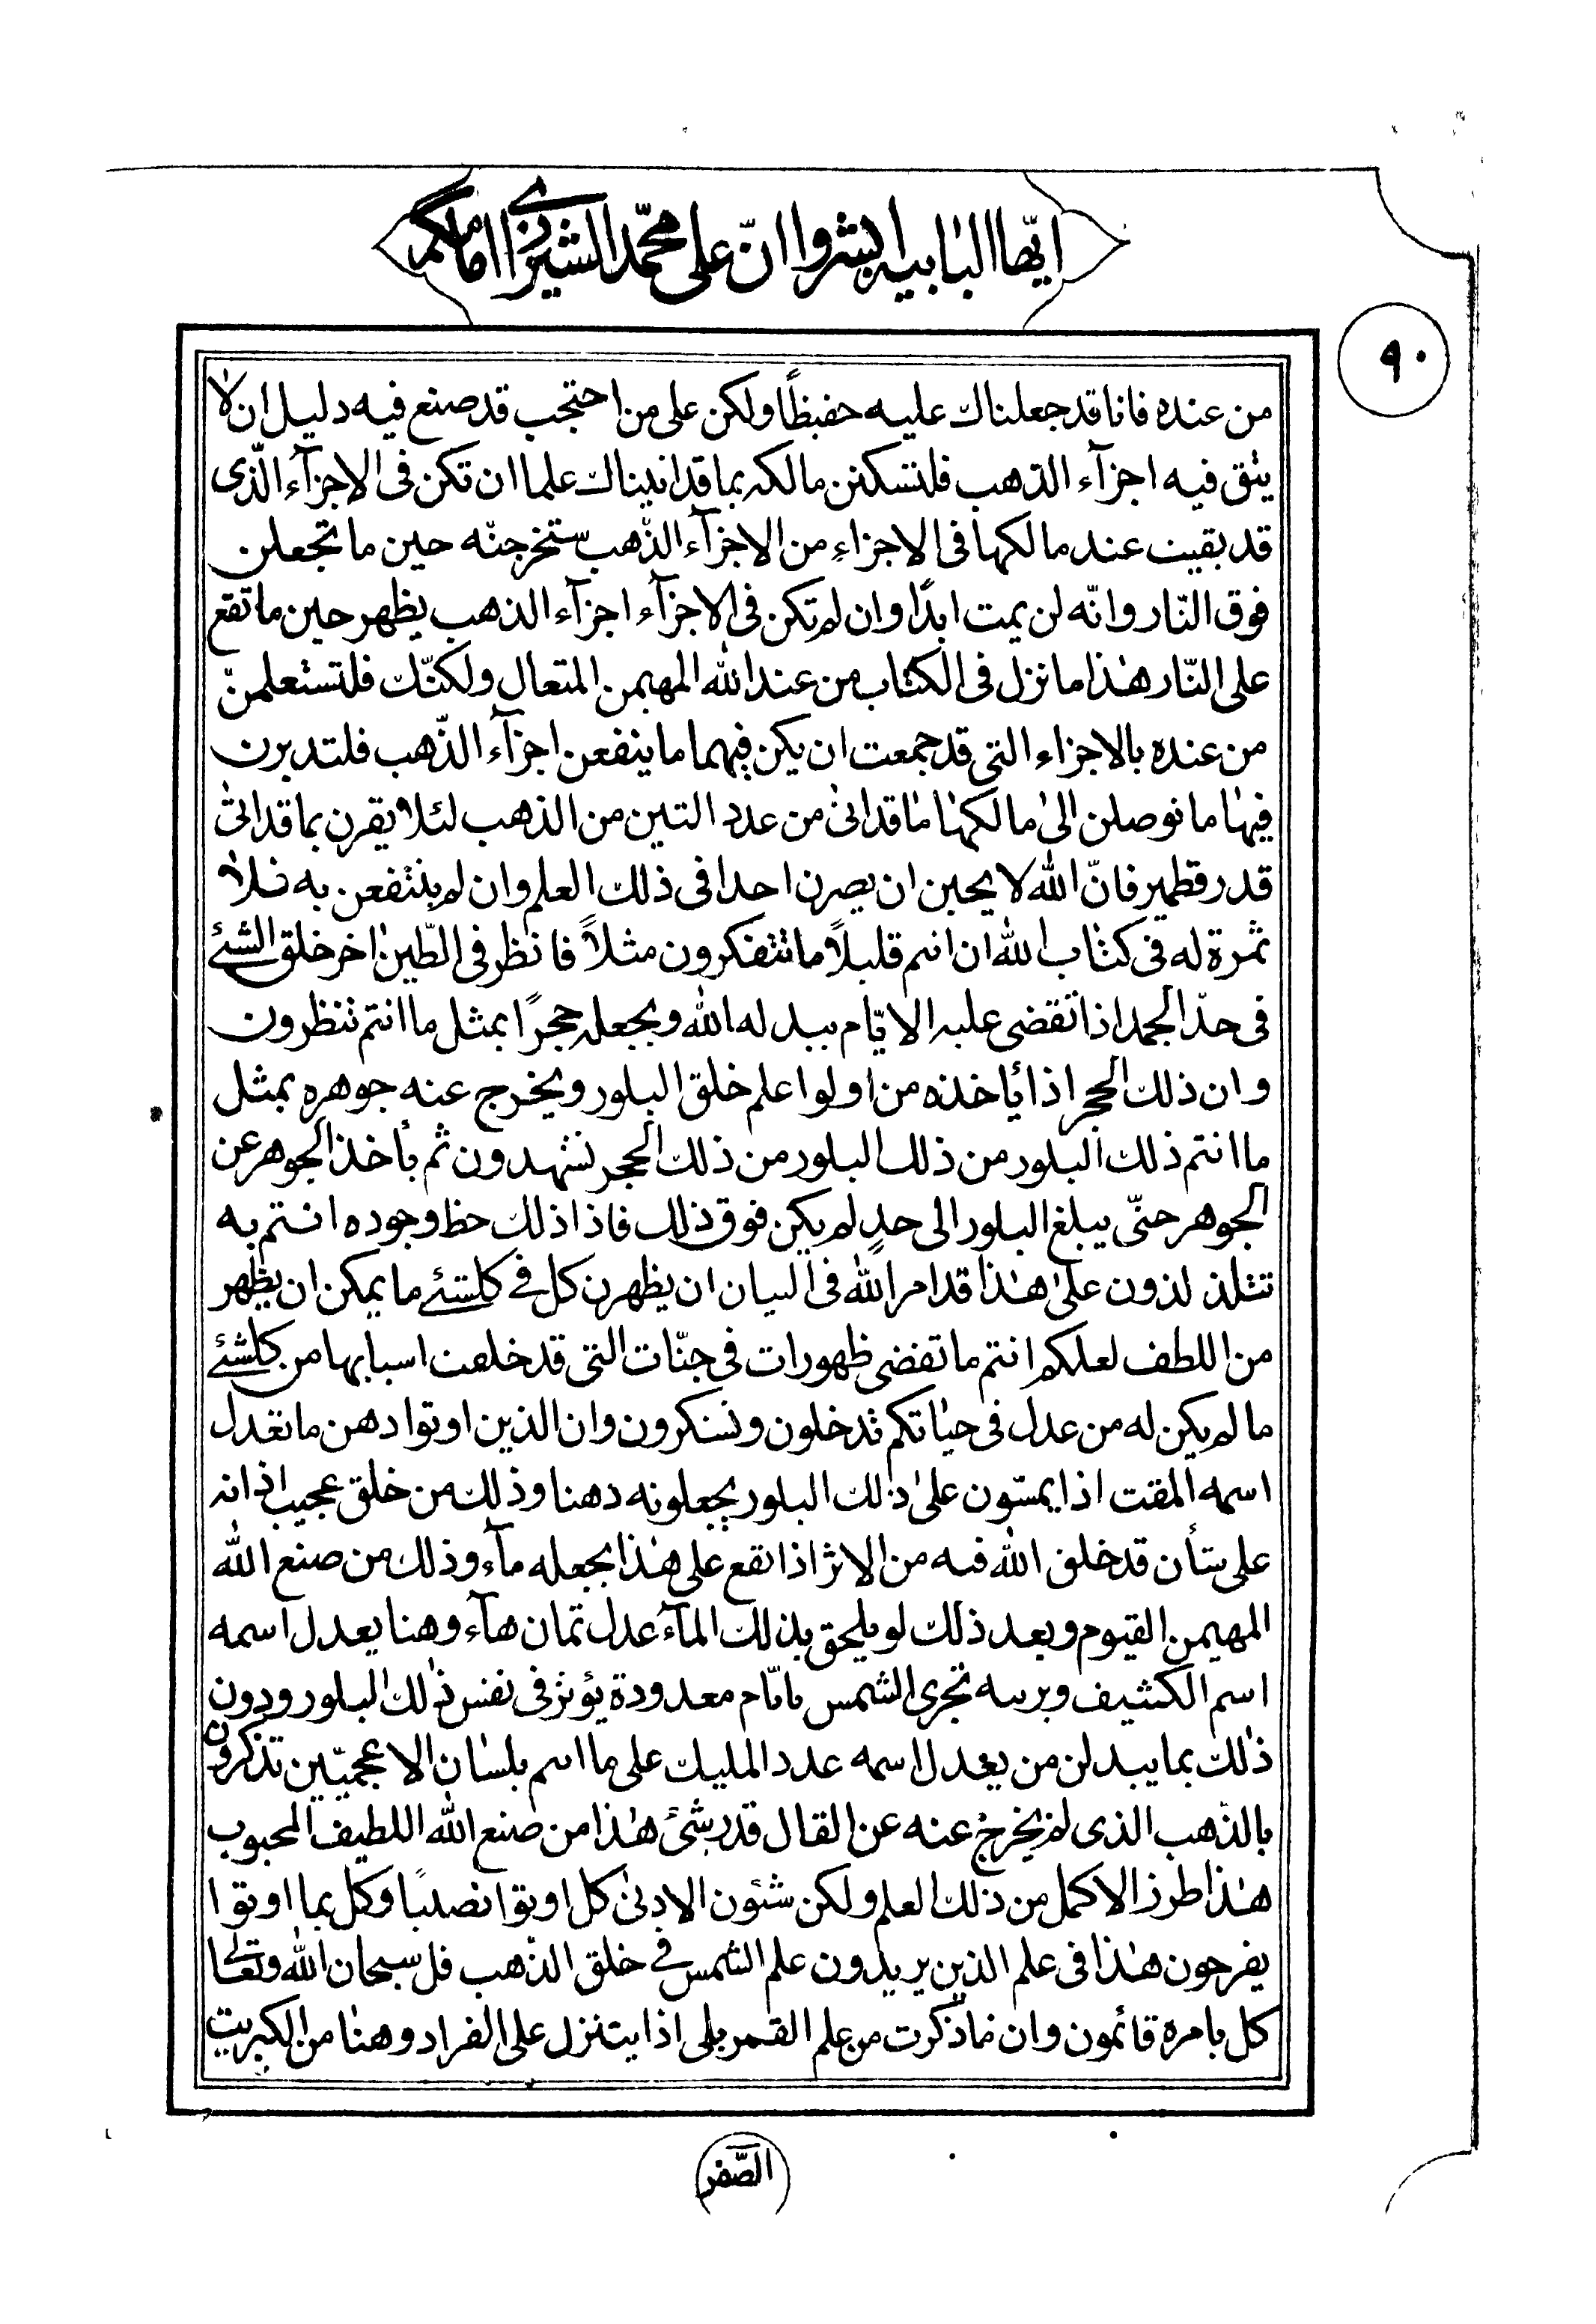 ايّها البابيه ابشروا انّ على محمّد الشيرازى امامكم
٩٠
من عنده فانا قد جعلناك عليه حفيظًا ولكن على من احتجب قد صنع فيه دليل ان لا
يبق فيه اجزآء الذهب فلتسكنن مالكه بما قد اتيناك علما ان تكن فى الاجزآء الّذى
قد بقيت عند مالكها فى الاجزاء من الاجزآء الذّهب ستخرجنّه حين ما تجعلن
فوق النّار وانّه لن يمت ابدًا وان لم تكن فى الاجزآء اجزآء الذهب يظهر حين ما تقع
على النّار هٰذا ما نزل فى الكتاب من عند الله المهيمن المتعال ولكنّك فلتستعلمنّ
من عنده بالاجزاء التى قد جمعت ان يكن فيهما ما ينفعن اجزآء الذّهب فلتدبرن
فيها ما توصلن الىٰ مالكها ما قد اتى من عدد التين من الذهب لئلا يقرن بما قد اتى
قدر قطمير فانّ الله لا يحبن ان يصرن احدا فى ذلك العلم وان لم ينتفعن به فلا
ثمرة له فى كتاب الله ان انتم قليلاً ما تتفكرون مثلاً فانظر فى الطّين اخر خلق الشئ
فى حدّ الجمد اذا تقضى عليه الايّام يبدله الله ويجعله حجرًا بمثل ما انتم تنظرون
وان ذلك الحجر اذا يأخذه من اولوا علم خلق البلور ويخرج عنه جوهره بمثل
ما انتم ذلك البلور من ذلك البلور من ذلك الحجر تشهدون ثم يأخذ الجوهر عن
الجوهر حتّى يبلغ البلور الى حدٍ لم يكن فوق ذلك فاذا ذلك حظ وجوده انتم به
تتلذذون علىٰ هٰذا قد امر الله فى البيان ان يظهرن كل فى كلشئ ما يمكن ان يظهر
من اللطف لعلكم انتم ما تقضى ظهورات فى جنّات التى قد خلقت اسبابها من كلشئ
ما لم يكن له من عدل فى حياتكم تدخلون وتسنكرون وان الذين اوتوا دهن ما تعدل
اسمه المقت اذا يمسّون علىٰ ذلك البلور يجعلونه دهنا وذلك من خلق عجيب اذ انه
على شأن قد خلق الله فيه من الاثر اذا تقع على هٰذا يجعله مآء وذلك من صنع الله
المهيمن القيوم وبعد ذلك لو يلحق بذلك المآء عدل ثمان هآء وهنا يعدل اسمه
اسم الكثيف وبربيه تجرى الشمس بايّام معدودة يؤثر فى نفس ذٰلك البلور ودون
ذٰلك بما يبدلن من يعدل اسمه عدد المليك على ما انتم بلسان الاعجميّين تذكرون
بالذّهب الذى لم يخرج عنه عن القال قدر شئ هٰذا من صنع الله اللطيف المحبوب
هٰذا طرز الاكمل من ذلك العلم ولكن شئون الادنىٰ كل اوتوا نصيبًا وكل بما اوتوا
يفرحون هٰذا فى علم الذين يريدون علم الشمس فى خلق الذّهب قل سبحان الله وتعالىٰ
كل بامره قائمون وان ما ذكرت من علم القمر بلى اذا يتنزل على الفراد وهنا من الكبريت
الصّفر